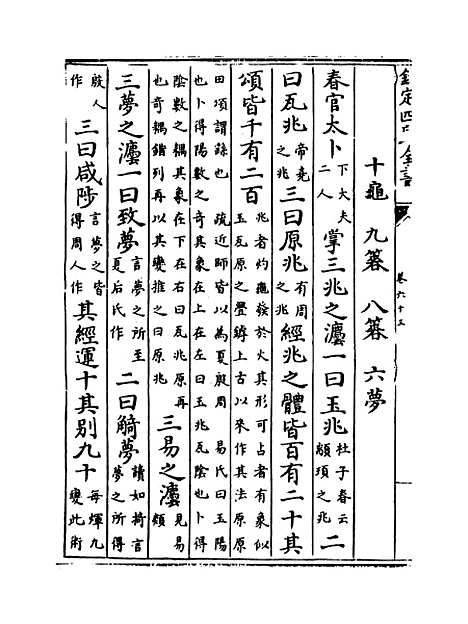 欽定四庫全書
卷六十三
十龜 九簭 八簭 六夢
春官太卜下大夫二人掌三兆之灋一曰玉兆杜子春云顓頊之兆二
曰瓦兆帝堯之兆三曰原兆有周之兆經兆之體皆百有二十其
頌皆千有二百兆者灼龜發於火其形可占者有象似玉瓦原之舋罅上古以來作其法原原
田頌謂繇也 疏近師皆以為夏殷周 易氏曰玉陽也卜得陽數之奇其象在上在左曰玉兆瓦陰也卜得
陰數之耦其象在下在右曰瓦兆原再也奇耦錯列再以其變推之曰原兆三易之灋見易類
三夢之灋一曰致夢言夢之所至夏后氏作二曰觭夢讀如掎言夢之所得
殷人作三曰咸陟言夢之皆得周人作其經運十其別九十每煇九變此術